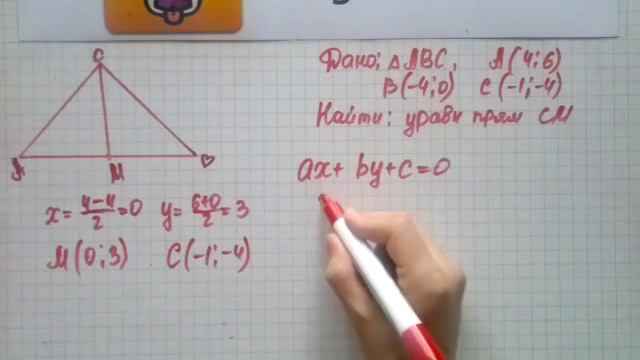 Дано: △ABC, A(4;6)
B(-4;0) C(-1;-4)
Найти: уравн прям CM
C
A M B
ax + by + c = 0
x = \frac{4-4}{2} = 0 y = \frac{6+0}{2} = 3
M(0;3) C(-1;-4)